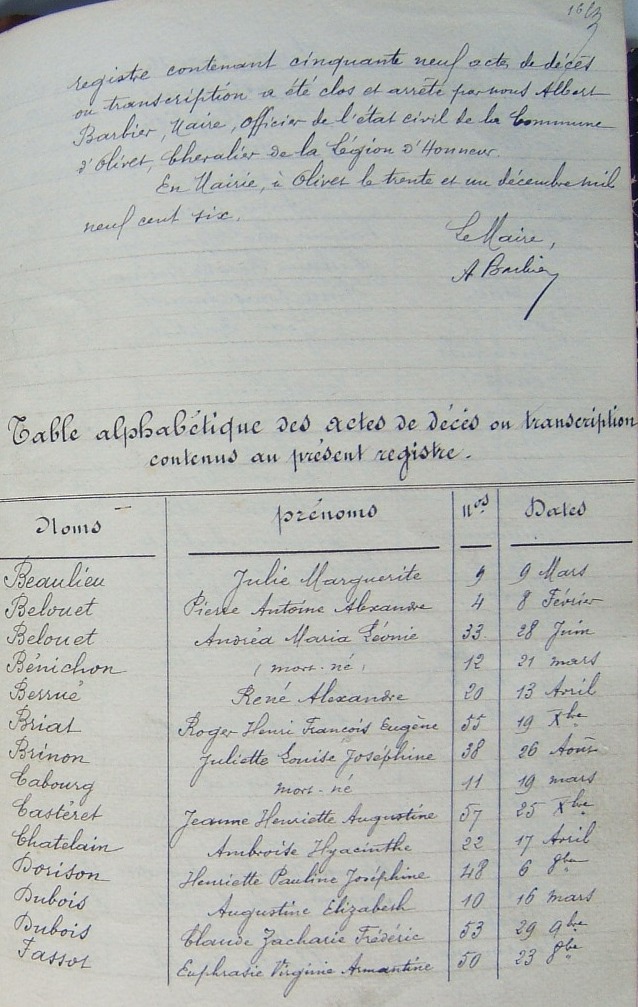 registre contenant cinquante neuf actes de décès
ou transcription a été clos et arrêté par nous Albert
Barbier, Maire, Officier de l'état civil de la Commune
d'Olivet, Chevalier de la Légion d'Honneur.
En Mairie, à Olivet le trente et un décembre mil
neuf cent six.
Le Maire,
A Barbier
Table alphabétique des actes de décès ou transcription
contenus au présent registre.
Noms prénoms Nos Dates
Beaulieu Julie Marguerite 9 9 Mars
Belouet Pierre Antoine Alexandre 4 8 Février
Belouet Andréa Maria Léonie 33 28 Juin
Bénichon (mort-né) 12 21 mars
Berrué René Alexandre 20 13 Avril
Briat Roger Henri François Eugène 55 19 Xbre
Brinon Juliette Louise Joséphine 38 26 Août
Cabourg mort-né 11 19 mars
Castéret Jeanne Henriette Augustine 57 25 Xbre
Chatelain Ambroise Hyacinthe 22 17 Avril
Dorison Henriette Pauline Joséphine 48 6 8bre
Dubois Augustine Elizabeth 10 16 mars
Dubois Claude Zacharie Frédéric 53 29 9bre
Fassot Euphrasie Virginie Armantine 50 23 8bre